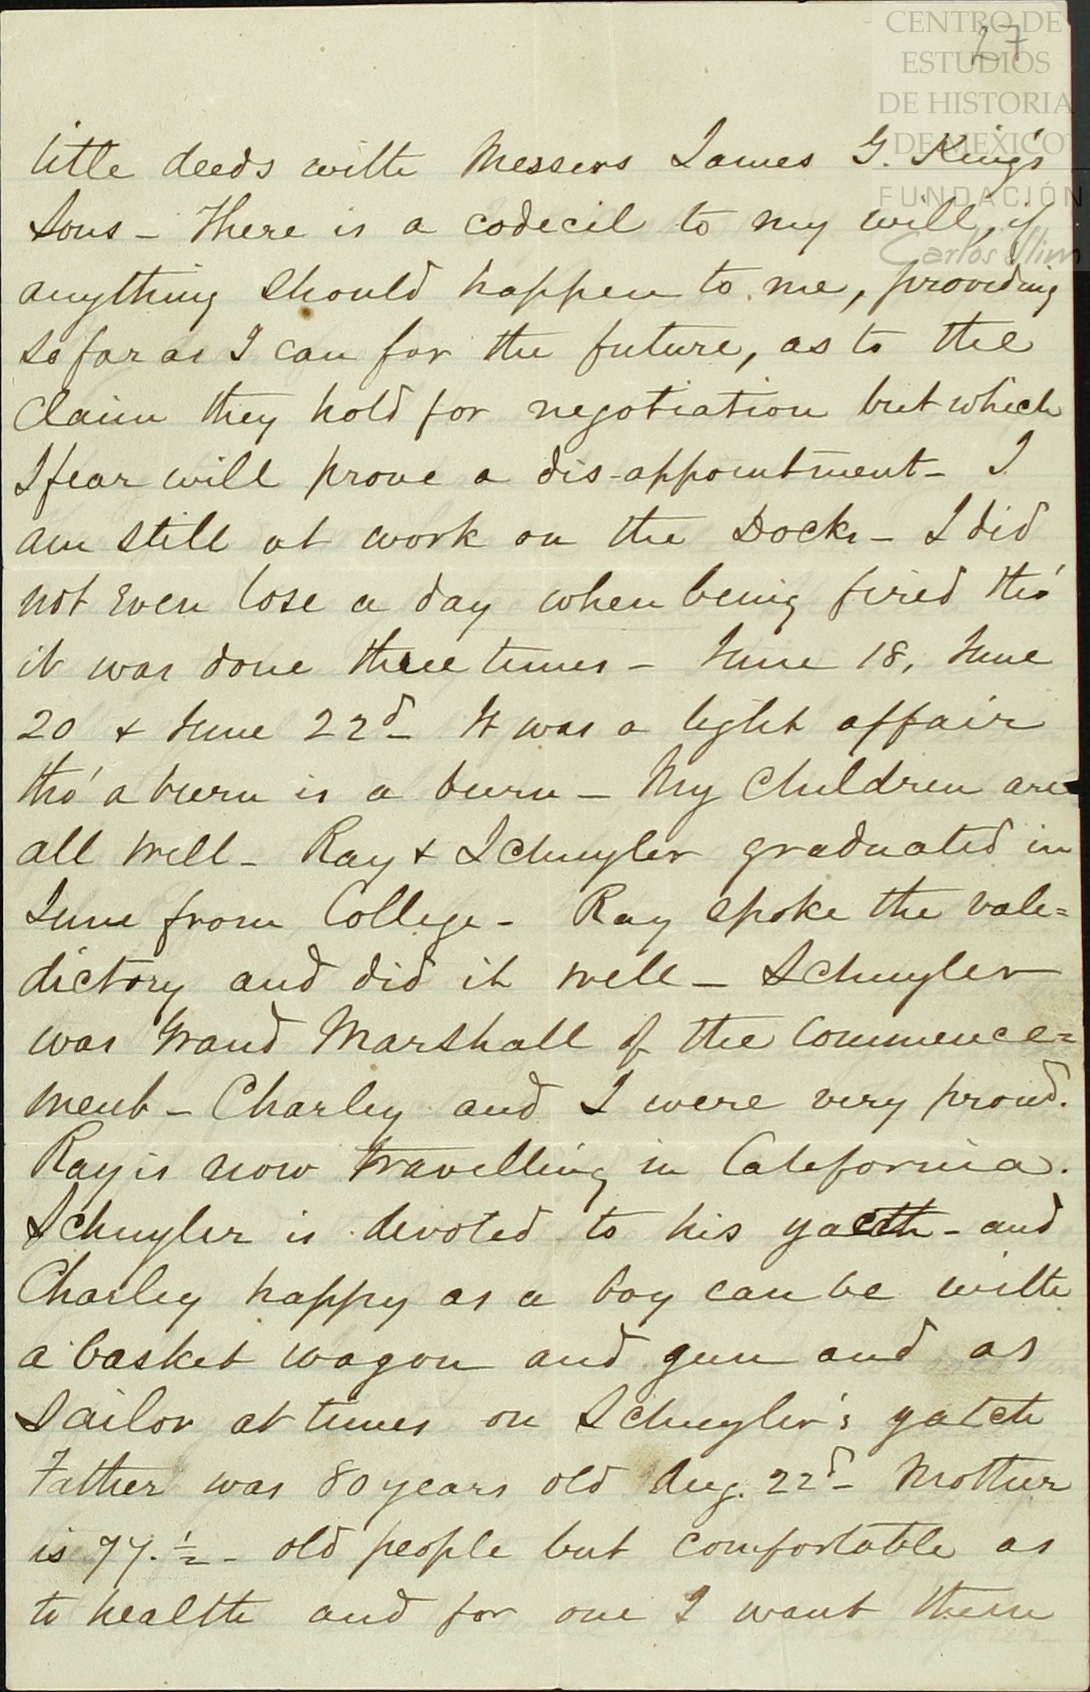 CENTRO DE
ESTUDIOS
DE HISTORIA
DE MEXICO
FUNDACIÓN
Carlos Slim
27
title deeds with Messers James G. King's
Sons - There is a codecil to my will, if
anything should happen to me, providing
so far as I can for the future, as to the
Claim they hold for negotiation but which
I fear will prove a dis-appointment - I
am still at work on the Docks - I did
not Even lose a day when being fired tho'
it was done three times - June 18, June
20 + June 22d - It was a light affair
tho' a burn is a burn - My Children are
all well - Ray + Schuyler graduated in
June from College - Ray spoke the vale=
dictory and did it well - Schuyler
was Grand Marshall of the Commence=
ment - Charley and I were very proud.
Ray is now travelling in California.
Schuyler is devoted to his yacth - and
Charley happy as a boy can be with
a basket wagon and gun and as
Sailor at times on Schuyler's yatch
Father was 80 years old Aug. 22d - Mother
is 77. ½ - old people but comfortable as
to health and for one I want them